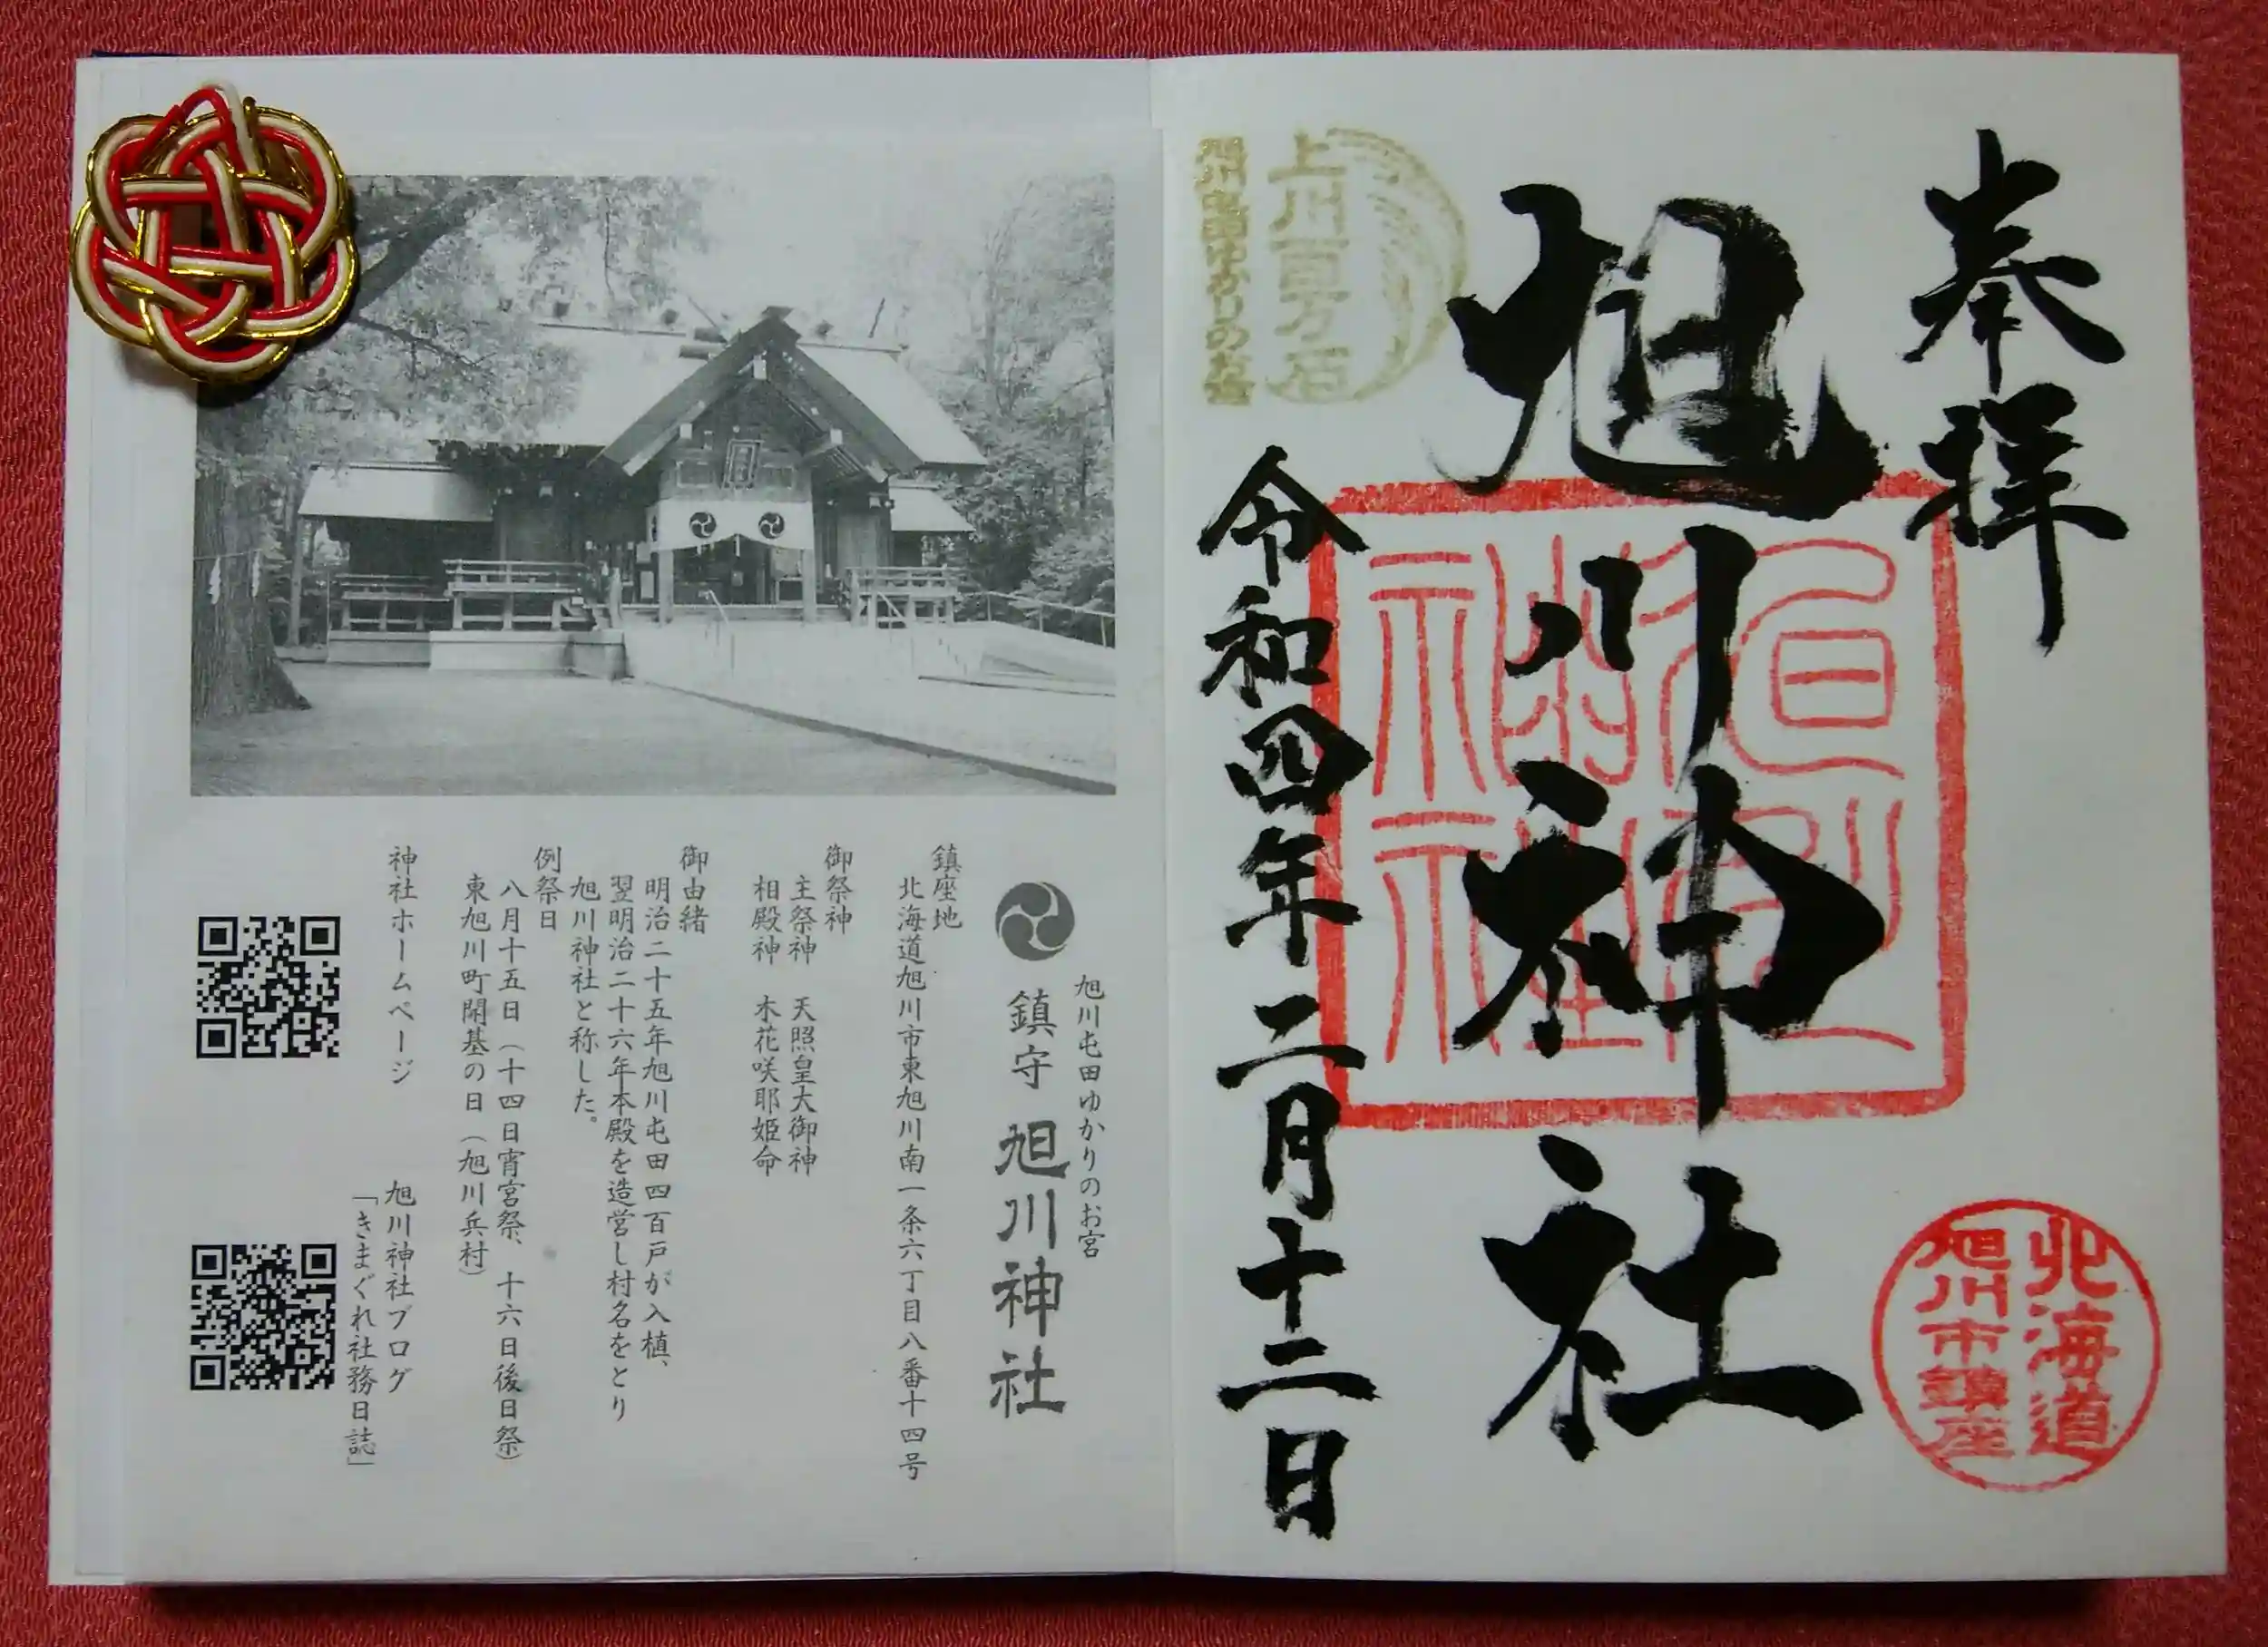 奉拝
旭川神社
令和四年二月十二日
上川百万石
旭川屯田ゆかりのお宮
旭川神社
北海道
旭川市鎮座
旭川屯田ゆかりのお宮
鎮守 旭川神社
鎮座地
北海道旭川市東旭川南一条六丁目八番十四号
御祭神
主祭神 天照皇大御神
相殿神 木花咲耶姫命
御由緒
明治二十五年旭川屯田四百戸が入植、
翌明治二十六年本殿を造営し村名をとり
旭川神社と称した。
例祭日
八月十五日(十四日宵宮祭、十六日後日祭)
東旭川町開基の日(旭川兵村)
神社ホームページ
旭川神社ブログ
「きまぐれ社務日誌」